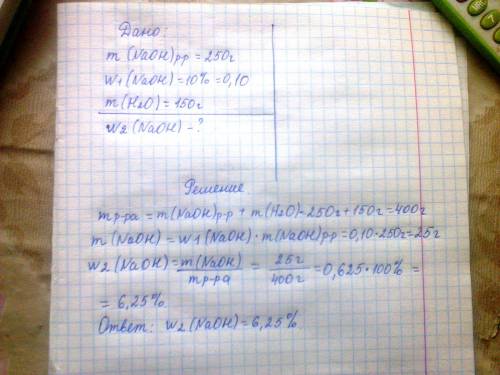 Дано:
m (NaOH)р-р = 250г
w1 (NaOH) = 10% = 0,10
m (H2O) = 150г
w2 (NaOH) - ?
Решение
mр-ра = m(NaOH)р-р + m(H2O) = 250г + 150г = 400г
m (NaOH) = w1 (NaOH) · m(NaOH)р-р = 0,10 · 250г = 25г
w2 (NaOH) = m(NaOH) / mр-ра = 25г / 400г = 0,625 · 100% =
= 6,25%
Ответ: w2 (NaOH) = 6,25%